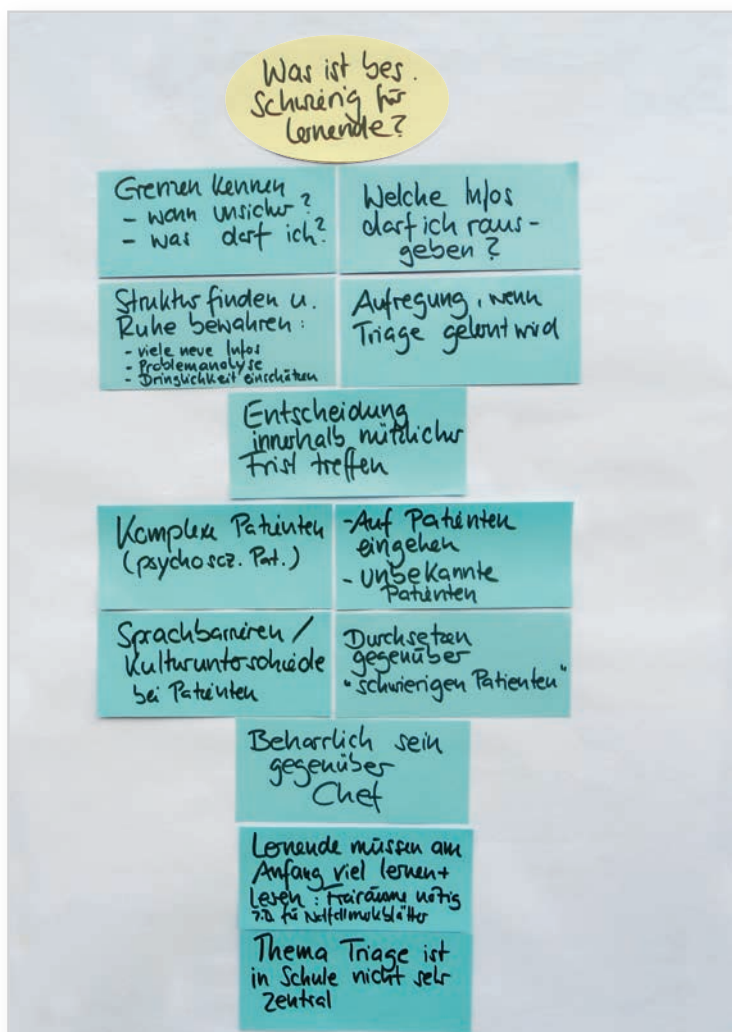 Was ist bes.
Schwierig für
Lernende?
Grenzen kennen
- wann unsicher?
- was darf ich?
Welche Infos
darf ich raus-
geben?
Struktur finden u.
Ruhe bewahren:
- viele neue Infos
- Problemanalyse
- Dringlichkeit einschätzen
Aufregung, wenn
Triage gelernt wird
Entscheidung
innerhalb nützlicher
Frist treffen
Komplexe Patienten
(psychosoz. Pat.)
-Auf Patienten
eingehen
- unbekannte
Patienten
Sprachbarrieren /
Kulturunterschiede
bei Patienten
Durchsetzen
gegenüber
"schwierigen Patienten"
Beharrlich sein
gegenüber
Chef
Lernende müssen am
Anfang viel lernen +
lesen: Freiräume nötig
z.B. für Notfallmerkblätter
Thema Triage ist
in Schule nicht sehr
zentral